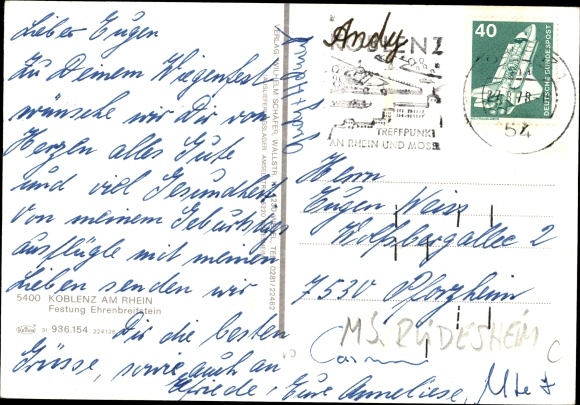 Lieber Eugen
Zu Deinem Wiegenfest
wünsche wir Dir von
Herzen alles Gute
und viel Gesundheit
Von meinem Geburtstags
ausflügle mit meinen
Lieben senden wir
Dir die besten
Grüsse, sowie auch an
Elfriede, Eure Anneliese,
5400 KOBLENZ AM RHEIN
Festung Ehrenbreitstein
936.154
VERLAG WILHELM SCHÄFER, WALLSTR.
0281/22462
Andy
KOBLENZ
TREFFPUNKT
AN RHEIN UND MOSEL
40
DEUTSCHE BUNDESPOST
54
Herrn
Eugen Weiss
Wolfsbergallee 2
7530 Pforzheim
MS. RÜDESHEIM